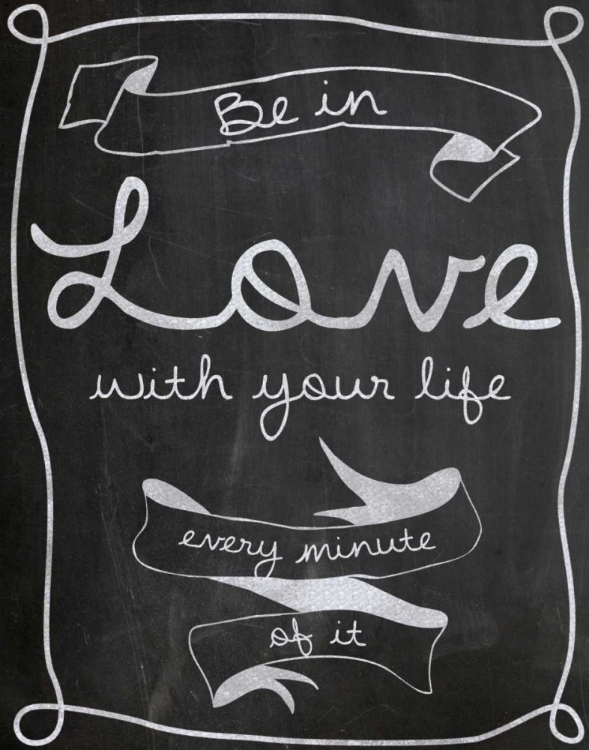 Be in
Love
with your life
every minute
of it